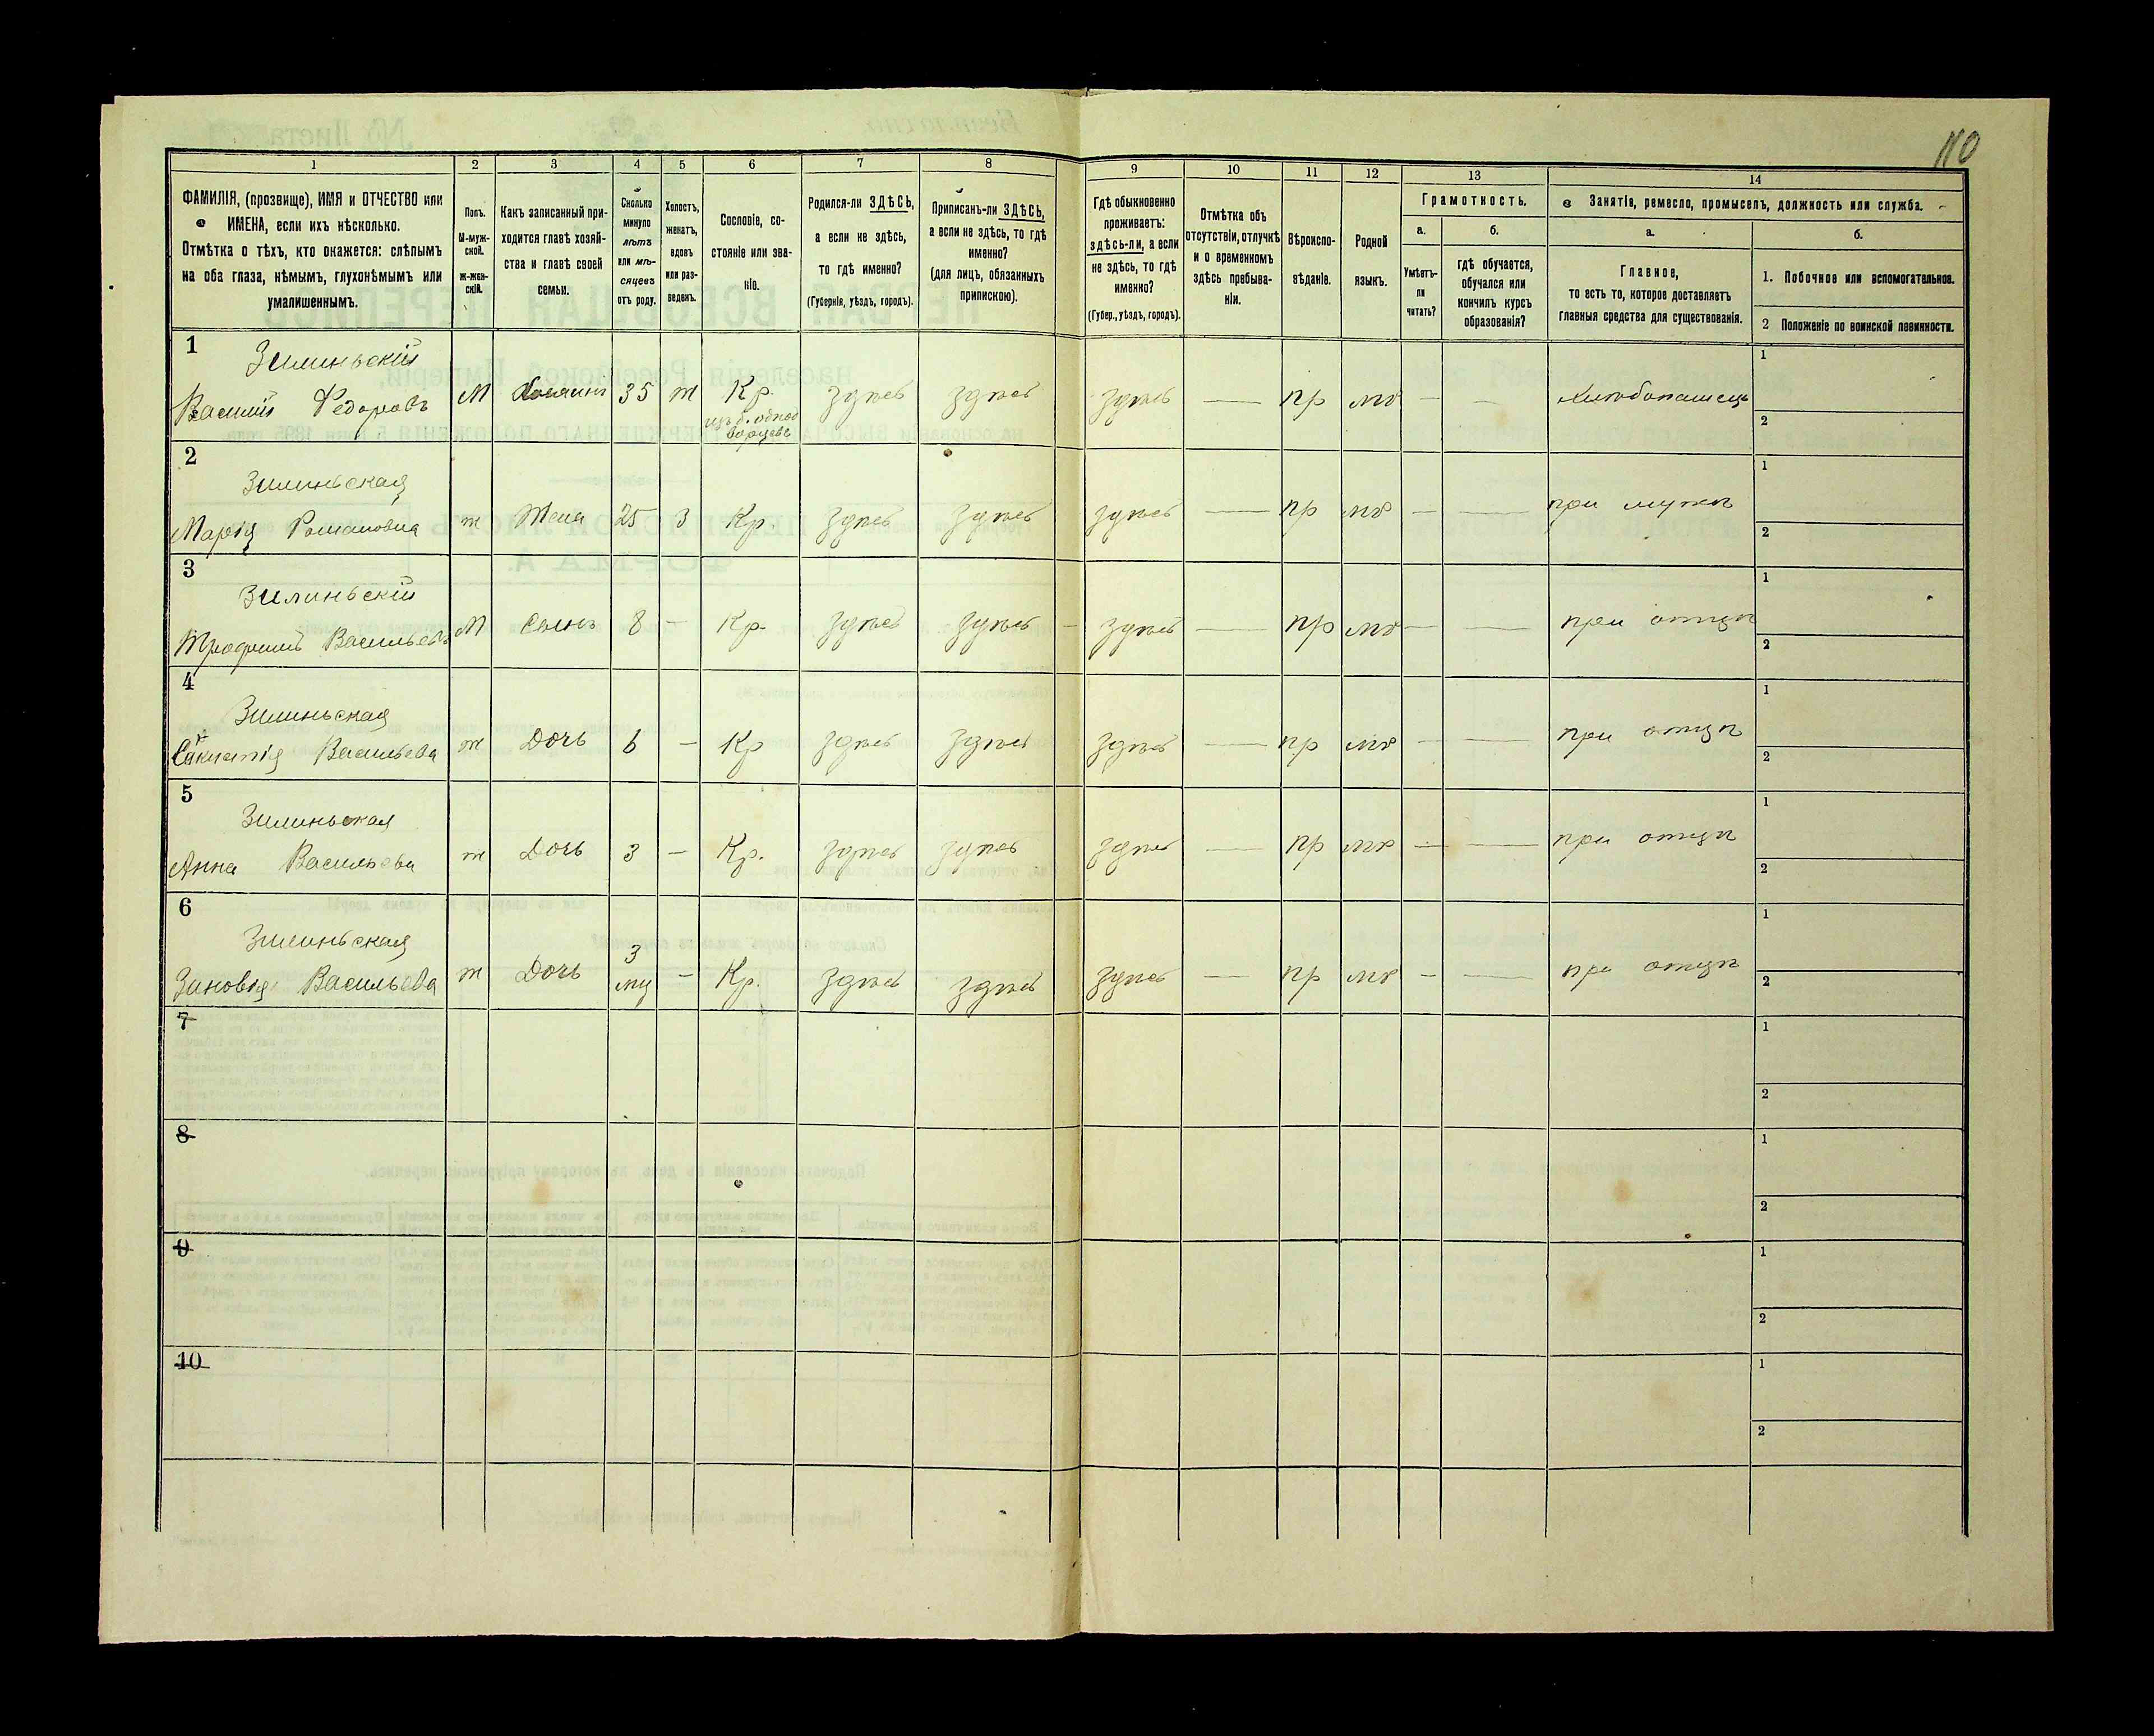 110
1 2 3 4 5 6 7 8 9 10 11 12 13 14
ФАМИЛІЯ, (прозвище), ИМЯ и ОТЧЕСТВО или
ИМЕНА, если ихъ нѣсколько.
Отмѣтка о тѣхъ, кто окажется: слѣпымъ
на оба глаза, нѣмымъ, глухонѣмымъ или
умалишеннымъ.
Полъ.
М-муж-
ской.
ж-жен-
скій.
Какъ записанный при-
ходится главѣ хозяй-
ства и главѣ своей
семьи.
Сколько
минуло
лѣтъ
или мѣ-
сяцевъ
отъ роду.
Холостъ,
женатъ,
вдовъ
или раз-
веденъ.
Сословіе, со-
стояніе или зва-
ніе.
Родился-ли ЗДѢСЬ,
а если не здѣсь,
то гдѣ именно?
(Губернія, уѣздъ, городъ).
Приписанъ-ли ЗДѢСЬ,
а если не здѣсь, то гдѣ
именно?
(для лицъ, обязанныхъ
припискою).
Гдѣ обыкновенно
проживаетъ:
здѣсь-ли, а если
не здѣсь, то гдѣ
именно?
(Губер., уѣздъ, городъ).
Отмѣтка объ
отсутствіи, отлучкѣ
и о временномъ
здѣсь пребыва-
ніи.
Вѣроиспо-
вѣданіе.
Родной
языкъ.
Грамотность.
а.
Умѣетъ-
ли
читать?
б.
гдѣ обучается,
обучался или
кончилъ курсъ
образованія?
Занятіе, ремесло, промыселъ, должность или служба.
а.
Главное,
то есть то, которое доставляетъ
главныя средства для существованія.
б.
1. Побочное или вспомогательное.
2 Положеніе по воинской повинности.
1 Зилиньскій
Василій Федоровъ М Хозяинъ 35 ж Кр. здѣсь здѣсь здѣсь — пр мр — — Хлѣбопашецъ
изъ б. однод
ворцевъ
1
2
2 Зилиньская
Марія Романовна ж Жена 25 З Кр. здѣсь здѣсь здѣсь — пр мр — — при мужѣ
1
2
3 Зилиньскій
Трофимъ Васильевъ М Сынъ 8 — Кр. здѣсь здѣсь — здѣсь — пр мр — — при отцѣ
1
2
4 Зилиньская
Васильева ж Дочь 6 — Кр здѣсь здѣсь здѣсь — пр мр — — при отцѣ
1
2
5 Зилиньская
Анна Васильева ж Дочь 3 — Кр. здѣсь здѣсь здѣсь — пр мр — — при отцѣ
1
2
6 Зилиньская
Зиновія Васильева ж Дочь 3 мц — Кр. здѣсь здѣсь здѣсь — пр мр — — при отцѣ
1
2
7
1
2
8
1
2
9
1
2
10
1
2